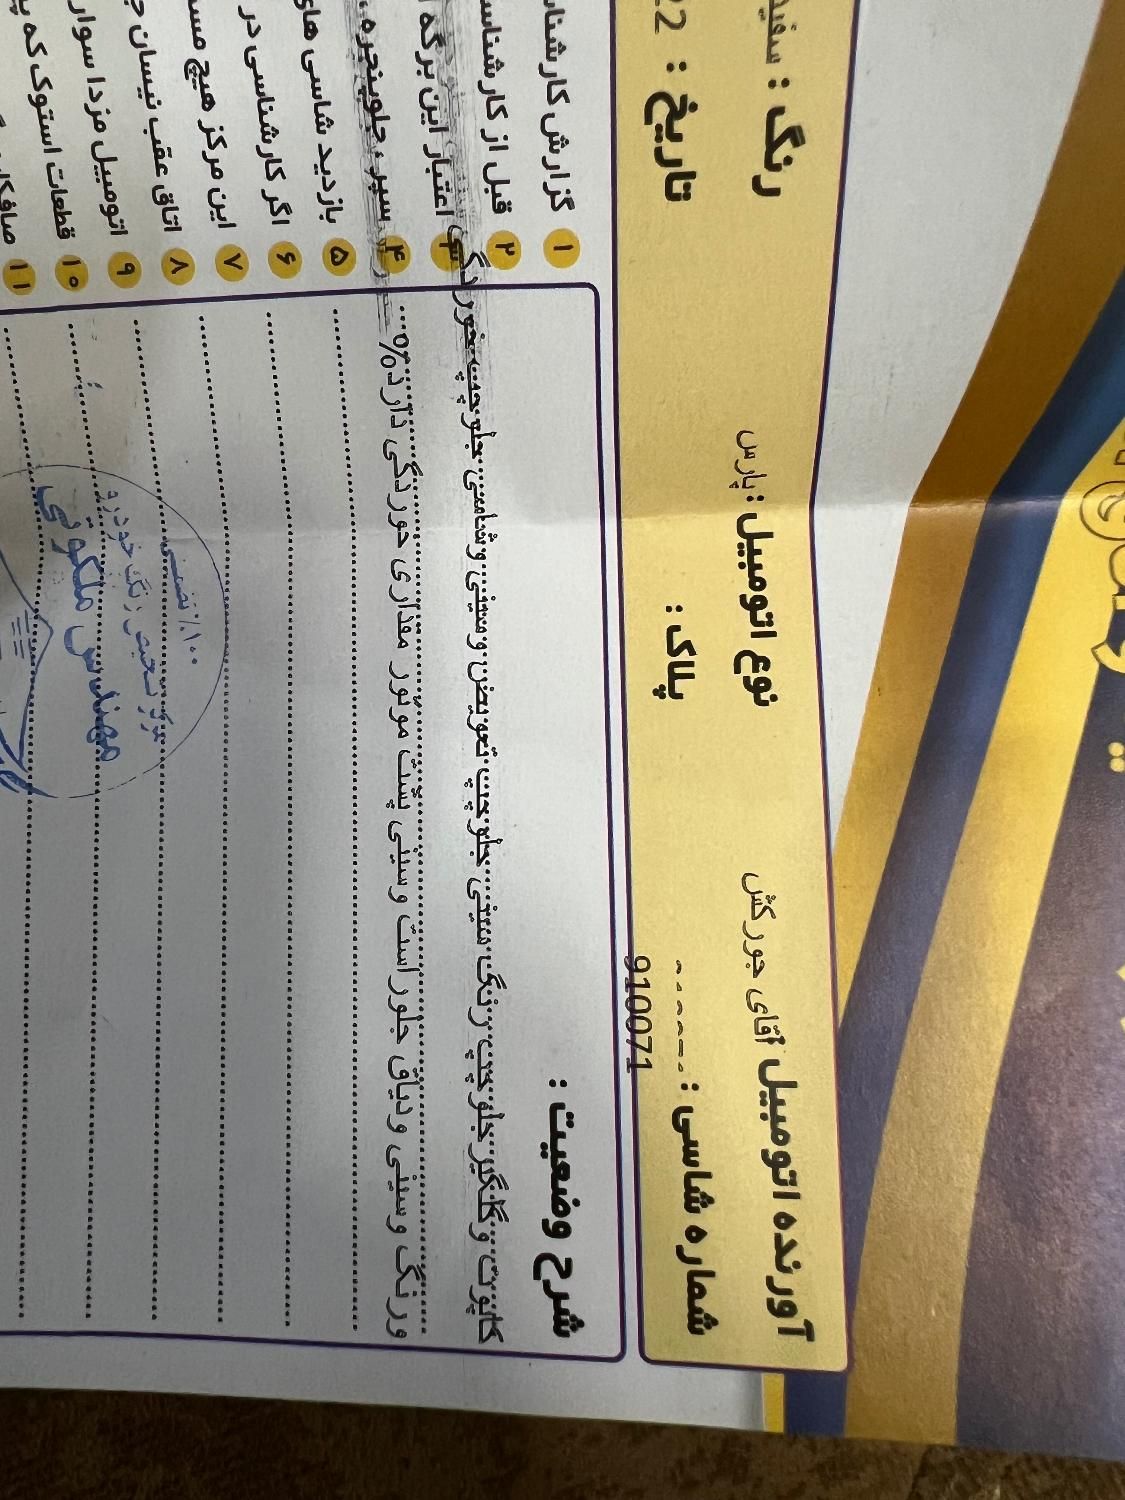 آورنده اتومبیل آقای جورکش
نوع اتومبیل : پارس
رنگ : سفید
شماره شاسی :
910071
پلاک :
تاریخ : 22
شرح وضعیت :
کاپوت و گلگیر جلو چپ رنگ سینی جلو چپ تعویض و سینی وشاسی جلو چپ خوردگی
و رنگ و سینی ودیاق جلو راست وسینی پشت موتور مقداری خوردگی دارد%
۱ گزارش کارشنا
۲ قبل از کارشناس
۳ اعتبار این برگه
۴ سپر، جلوپنجره،
۵ بازدید شاسی های
۶ اگر کارشناسی در
۷ این مرکز هیچ مس
۸ اتاق عقب نیسان
۹ اتومبیل مزدا سوار
۱۰ قطعات استوک که
۱۱ صافکا
۱۰۰٪ تضمینی
مرکز تشخیص رنگ خودرو
مهندس ملکوتی